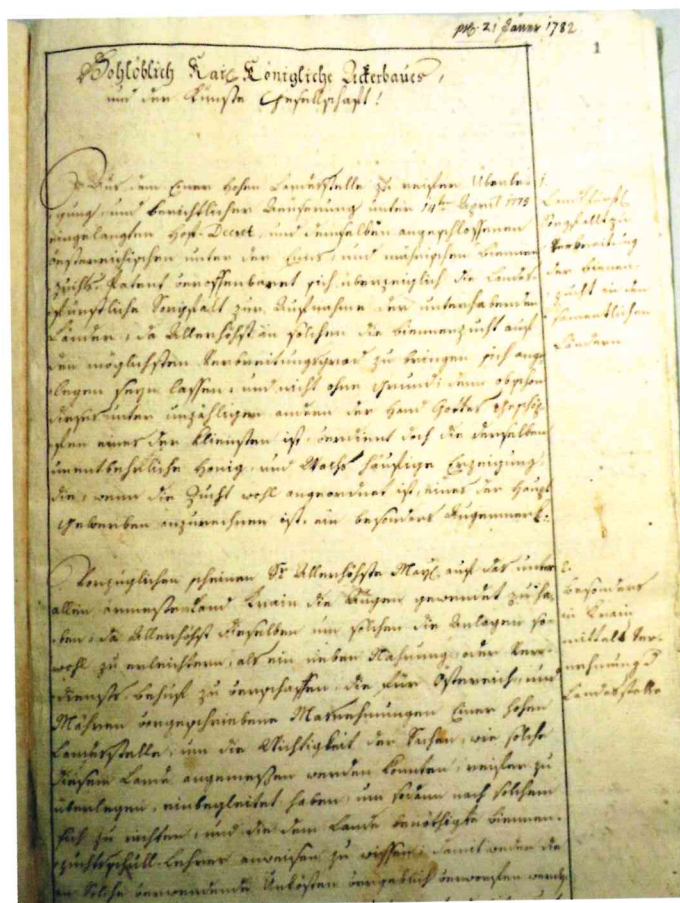 21 Jäner 1782
1
Hohlöblich Kais. Königliche Ackerbaues,
und der Künste Gesellschaft!
Aus dem Einer hohen Landesstelle zu reifer Überle-
gung, und berichtlicher Äusserung unter 14ten April 1775
eingelangten Hof-Decret, und demselben angeschlossenen
österreichischen unter der Enns, und mährischen Bienen-
zuchts-Patent veroffenbaret sich überzeiglich die Landes-
fürstliche Sorgfalt zur Aufnahme der unterhabenden
Länder, da Allerhöchst in solchen die Bienenzucht auf
den möglichsten Verbreitungsgrad zu bringen sich ange-
legen seyn lassen, und nicht ohne Grund; denn obschon
dieses unter unzähligen andern der Hand Gottes Geschöp-
fen eines der kleinsten ist, verdient doch die derselben
unentbehrliche Honig, und Wachs häuffige Erzeigung,
die, wenn die Zucht wohl angeordnet ist, eines der Haupt
Gewerben anzurechnen ist, ein besonders Augenmerk.
1.
Landesfürstl.
Sorgfalt zur
Verbreitung
der Bienen-
zucht in den
samentlichen
Ländern
Vorzüglichen scheinen Sr Allerhöchste May. auf das unter
allen ärmeste Land Krain die Augen gewendet zu ha-
ben, da Allerhöchst dieselben um solchen die Anlagen so-
wohl zu erleichtern, als ein neben Nahrung, oder Ver-
dienst behuf zu verschaffen, die für Österreich, und
Mähren vorgeschriebene Masnehmungen Einer hohen
Landesstelle, um die Wichtigkeit der Sachen, wie solche
diesem Lande angemessen werden könnten, reifer zu
überlegen, einbegleitet haben, um sodann nach solchem
sich zu richten, und die dem Lande benöthigte Bienen-
zuchtschull-Lehrer anweisen zu wissen; damit weder die
an solche verwendende Unkösten vergeblich verworfen werde
2.
besonders
in Krain
mittels Ver-
nehmung
Landesstelle